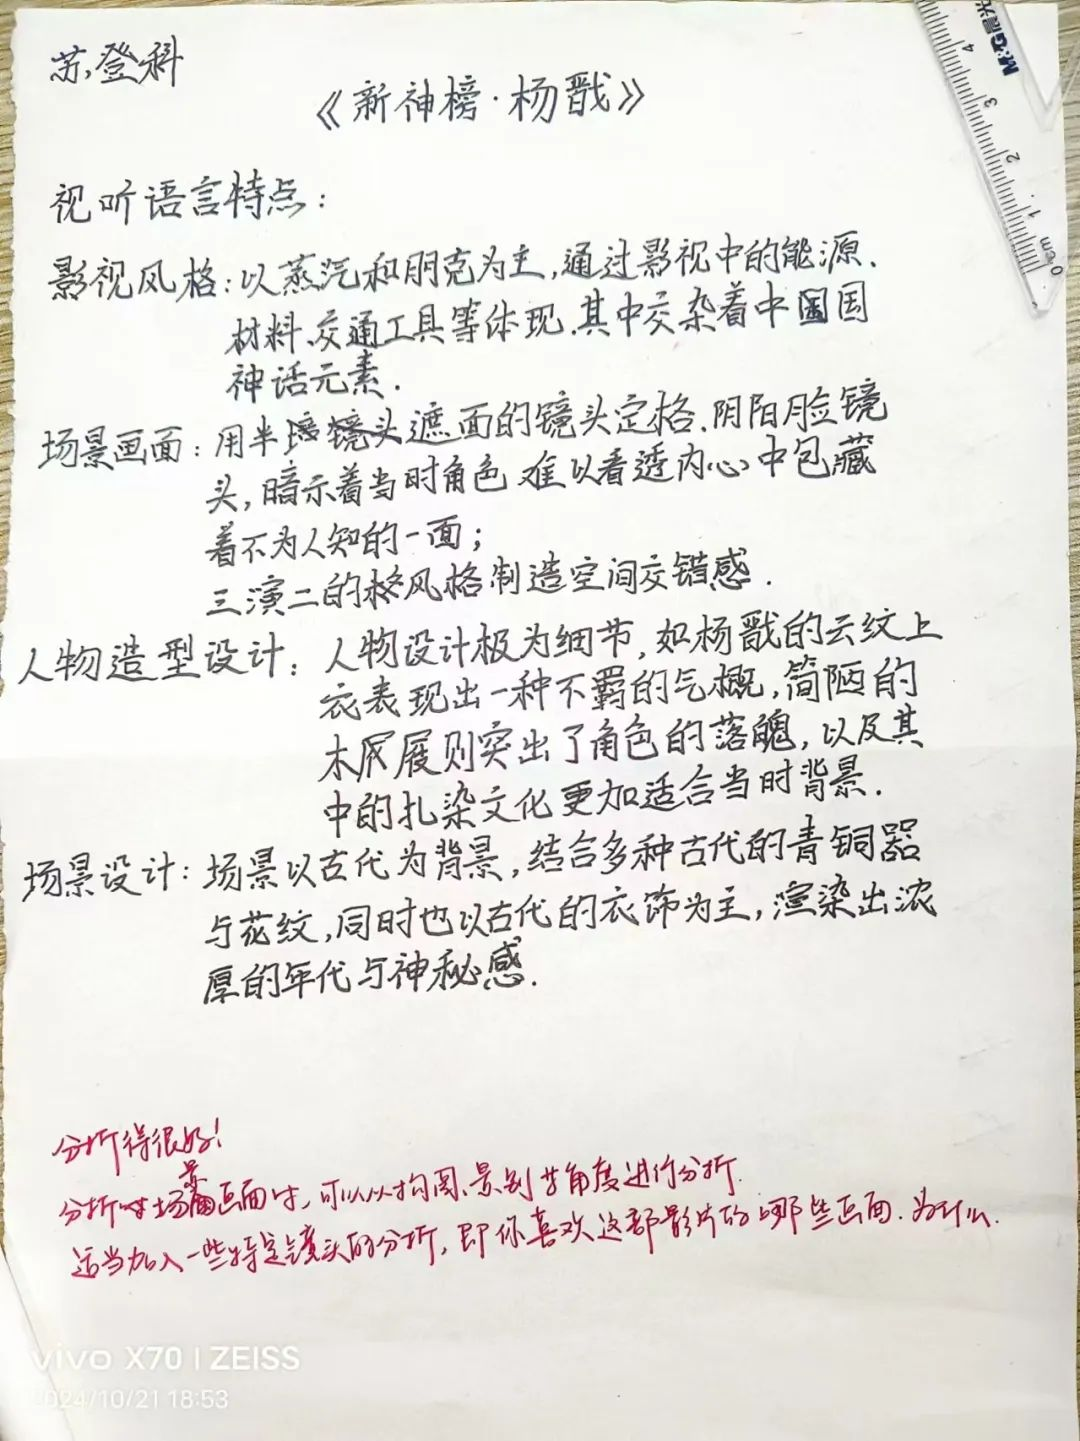 苏登科
《新神榜·杨戬》
视听语言特点：
影视风格：以蒸汽和朋克为主，通过影视中的能源.
材料、交通工具等体现.其中交杂着中国国
神话元素.
场景画面：用半镜头遮面的镜头定格.阴阳脸镜
头，暗示着当时角色难以看透内心中包藏
着不为人知的一面；
三演二的格风格制造空间交错感.
人物造型设计：人物设计极为细节，如杨戬的云纹上
衣表现出一种不羁的气概，简陋的
木屐则突出了角色的落魄，以及其
中的扎染文化更加适合当时背景.
场景设计：场景以古代为背景，结合多种古代的青铜器
与花纹，同时也以古代的衣饰为主，渲染出浓
厚的年代与神秘感.
分析得很好！
分析时场景画面时，可以从构图、景别等角度进行分析.
适当加入一些特定镜头的分析，即你喜欢这部影片的哪些画面.为什么.
vivo X70 | ZEISS
2024/10/21 18:53
M&G晨光
4
3
2
1
0cm